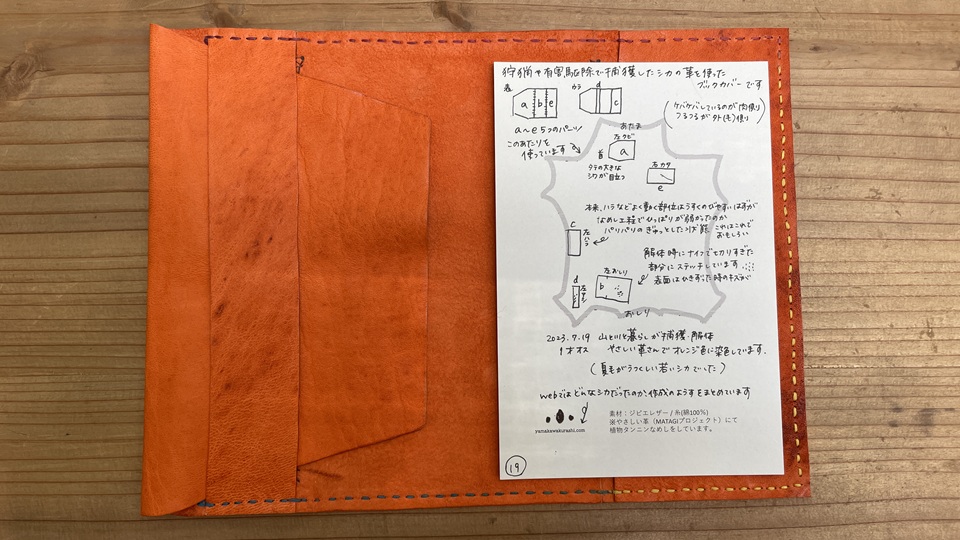 狩猟や有害駆除で捕獲したシカの革を使った
ブックカバーです
表
a b e
ウラ
d
c
a〜e 5つのパーツ
(ケバケバしているのが肉側
つるつるが外(毛)側)
このあたりを
使っています
あたま
左クビ
首
a
タテの大きな
シワが目立つ
右カタ
e
本来、ハラなどよく動く部位はうすくのびやすいはずが
なめし工程でひっぱりが弱かったのか
パリパリのぎゅっとした状態 これはこれで
おもしろい
c
左ハラ
解体時にナイフで切りすぎた
部分にステッチしています
表面はひきずった時のキズが
d
左おしり
b
おしり
2023.7.19 山と川と暮らしが捕獲・解体
1才オス やさしい革さんでオレンジ色に染色しています.
(夏毛がうつくしい若いシカでした)
webではどんなシカだったのか、作成のようすをまとめています
yamakawakurashi.com
素材：ジビエレザー / 糸(綿100%)
※やさしい革（MATAGIプロジェクト）にて
植物タンニンなめしをしています。
19